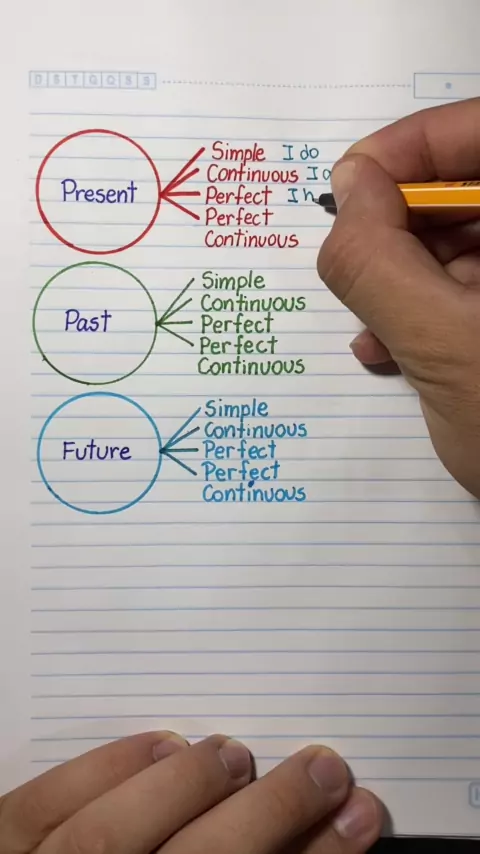 D S T Q Q S S
Present
Simple I do
Continuous I a
Perfect I h
Perfect
Continuous
Past
Simple
Continuous
Perfect
Perfect
Continuous
Future
Simple
Continuous
Perfect
Perfect
Continuous